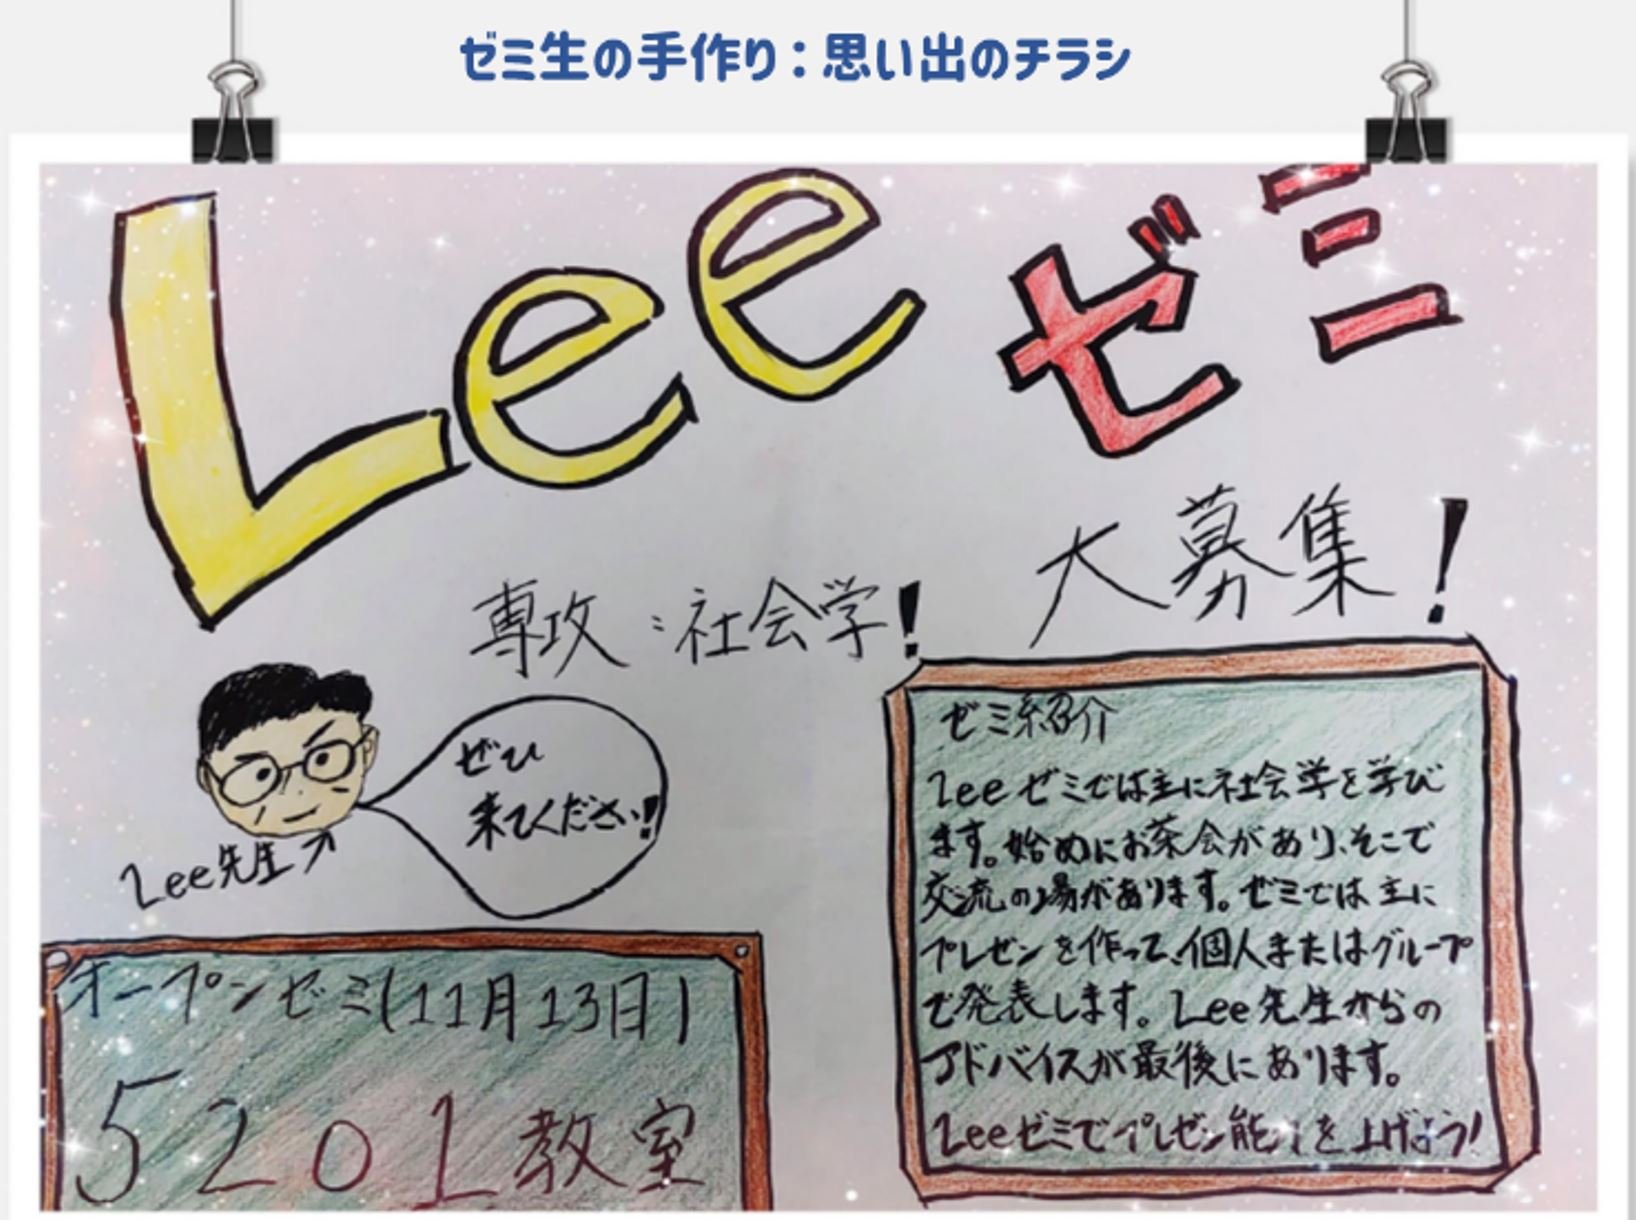 ゼミ生の手作り：思い出のチラシ
Leeゼミ
大募集!
専攻:社会学!
ぜひ
来てください!!
Lee先生↗
ゼミ紹介
Leeゼミでは主に社会学を学び
ます。始めにお茶会があり、そこで
交流の場があります。ゼミでは主に
プレゼンを作って、個人またはグループ
で発表します。Lee先生からの
アドバイスが最後にあります。
Leeゼミでプレゼン能力を上げよう!
オープンゼミ(11月13日)
5201教室